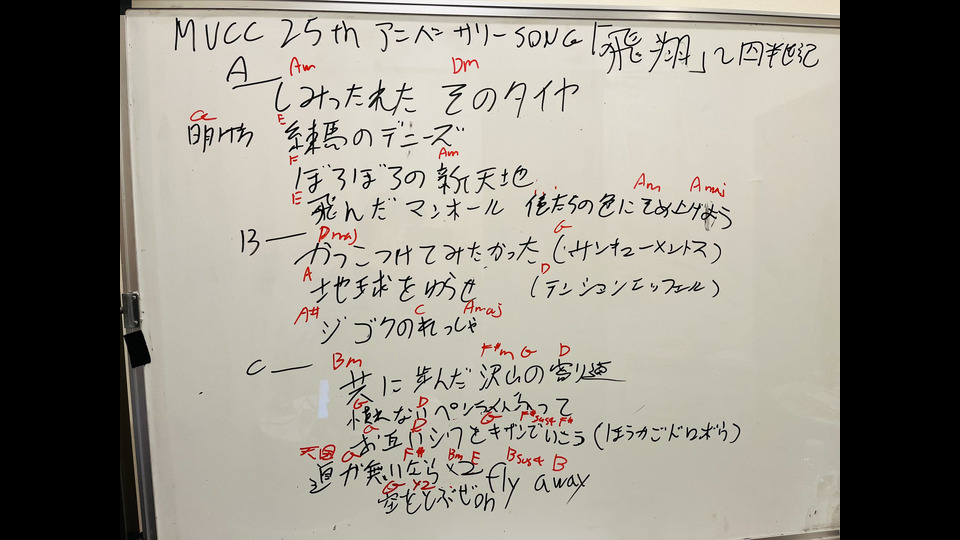 MVCC 25th アニバーサリーSONG「飛翔」~四半世紀
A Am Dm
しみったれた そのタイヤ
G E
明けち 練馬のデニーズ
F Am
ぼろぼろの新天地
E Am Amaj
飛んだマンホール 俺たちの色にそめ上げよう
B Dmaj G
かっこつけてみたかった (サンキューメントス)
A D
地球をゆらせ (テンションエッフェル)
A# C Amaj
ジゴクのれっしゃ
C Bm F#m G D
共に歩んだ沢山の寄り道
G D
ないペンライト
G D G F#sus4 F#
お互いシワをキザンでいこう (ほうかごドロボウ)
天国 G F# Bm E Bsus4 B
道が無いなら×2 fly away
G ×2
空をとぶぜ on